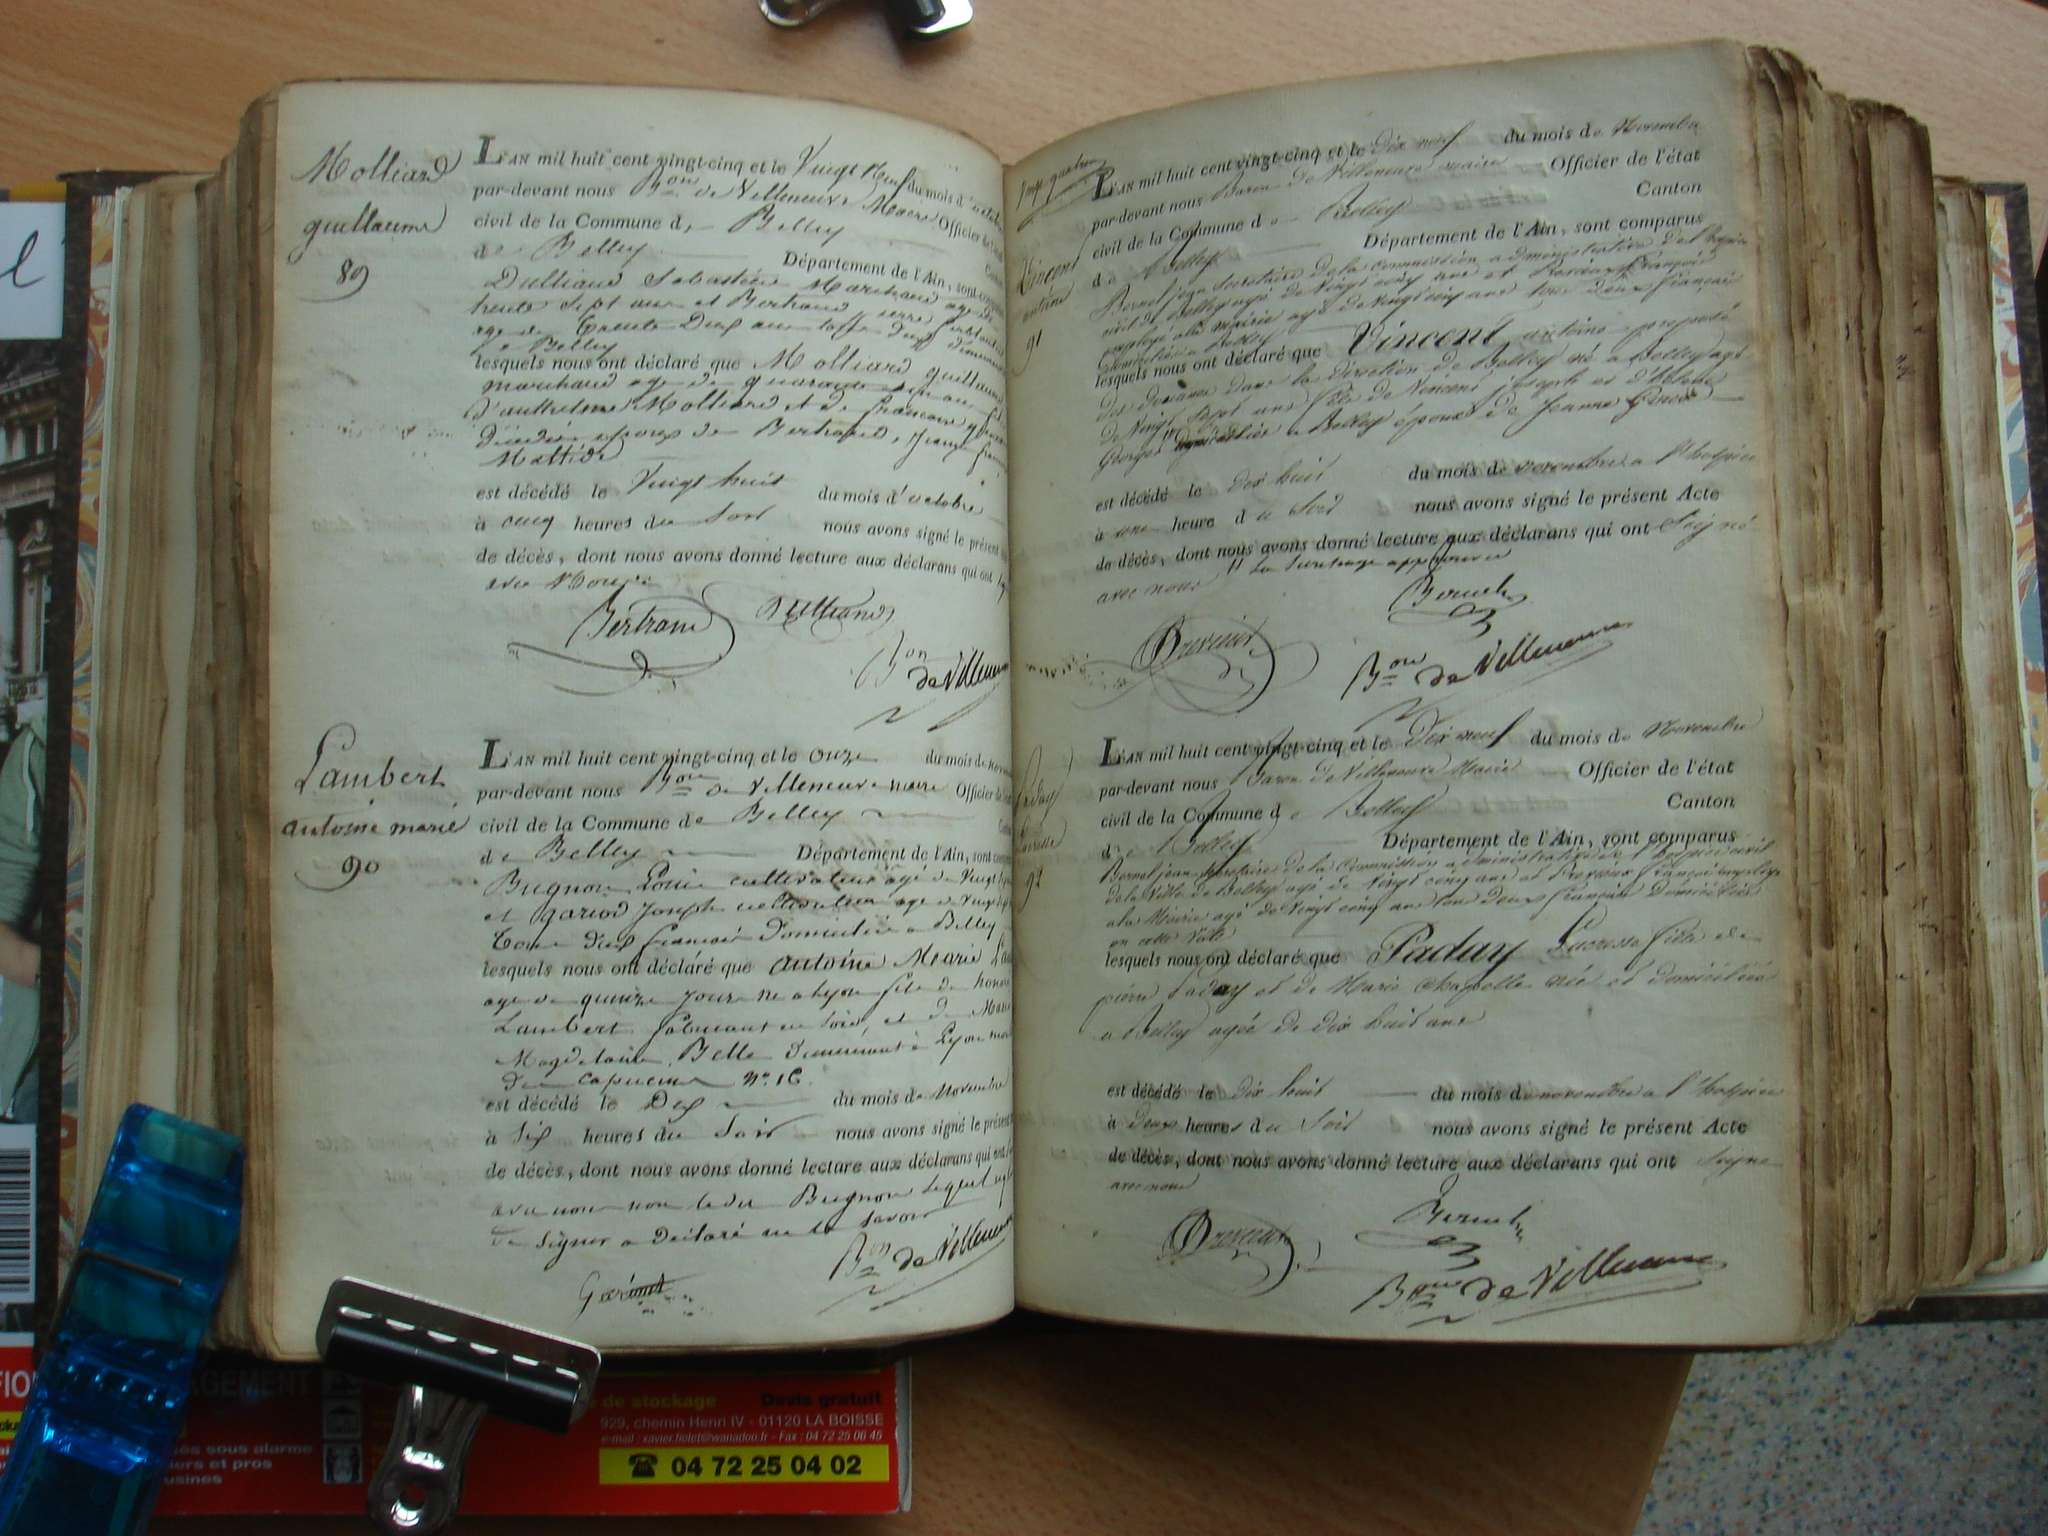 Molliard
guillaume
89
L'AN mil huit cent vingt-cinq et le Vingt Neuf du mois d'octobre
par-devant nous Bon de Villeneuve Maire Officier de l'état
civil de la Commune de Belley
de Belley Département de l'Ain, sont comparus
Dulliand Sebastien Marchand age de
trente Sept ans et Bertrand pierre
age de Trente Deux ans
a Belley
lesquels nous ont déclaré que Molliard guillaume
marchand age de quarante
D'anthelme Molliard et de francoise
Décédée epoux de Bertrand
est décédé le Vingt huit du mois d'octobre
à cinq heures du Soir nous avons signé le présent
de décès, dont nous avons donné lecture aux déclarans qui ont
avec Nous
Bertrand Dulliand
Bon de Villeneuve
Lambert
antoine marie
90
L'AN mil huit cent vingt-cinq et le onze du mois de
par-devant nous Bon de Villeneuve maire Officier de
civil de la Commune de Belley
de Belley Département de l'Ain, sont
Bugnon Louis cultivateur agé de Vingt
et gariod Joseph cultivateur age de vingt
Tous Deux francais Domiciliés a Belley
lesquels nous ont déclaré que antoine Marie
age de quinze jours né a Lyon fils de
Lambert fabricant en Soie, et de Marie
Magdelaine Belle Demeurant à Lyon
des capucins n° 16
est décédé le Dix du mois de Novembre
à Six heures du Soir nous avons signé le présent
de décès, dont nous avons donné lecture aux déclarans qui ont
avec nous non le dit Bugnon lequel
de signer a Déclaré ne le Savoir
Bon de Villeneuve
Vincent
antoine
91
L'AN mil huit cent vingt-cinq et le Dix neuf du mois de Novembre
par-devant nous Baron de Villeneuve maire Officier de l'état
civil de la Commune de Belley Canton
de Belley Département de l'Ain, sont comparus
Bernet jean Secretaire de la commission administrative de l'hospice
civil de Belley agé de Vingt cinq ans et Drevieux François
employé a la mairie agé de Vingt cinq ans tous deux français
Domiciliés a Belley
lesquels nous ont déclaré que Vincent antoine préposé
des douanes dans la direction de Belley né a Belley agé
de Vingt Sept ans fils de Vincent joseph et d'
Georges a Belley époux de Jeanne
est décédé le dix huit du mois de novembre a l'hospice
à une heure du Soir nous avons signé le présent Acte
de décès, dont nous avons donné lecture aux déclarans qui ont Signé
avec nous la Surcharge approuvée
Bernet
Drevieux
Bon de Villeneuve
Paday
Lucresse
92
L'AN mil huit cent vingt-cinq et le Dix neuf du mois de Novembre
par-devant nous Baron de Villeneuve Maire Officier de l'état
civil de la Commune de Belley Canton
de Belley Département de l'Ain, sont comparus
Bernet jean Secretaire de la Commission administrative de l'hospice civil
de la Ville de Belley agé de Vingt cinq ans et Drevieux françois employé
a la Mairie agé de Vingt cinq ans tous Deux français Domiciliés
en cette Ville
lesquels nous ont déclaré que Paday Lucresse fille de
pierre Paday et de Marie chapelle née et domiciliée
a Belley agée de dix huit ans
est décédé le Dix huit du mois de novembre a l'hospice
à Deux heures du Soir nous avons signé le présent Acte
de décès, dont nous avons donné lecture aux déclarans qui ont Signé
avec nous
Bernet
Drevieux
Bon de Villeneuve
de stockage Devis gratuit
929, chemin Henri IV - 01120 LA BOISSE
e-mail : xavier.holet@wanadoo.fr - Fax : 04 72 25 06 45
☎ 04 72 25 04 02
sous alarme
iers et pros
usines